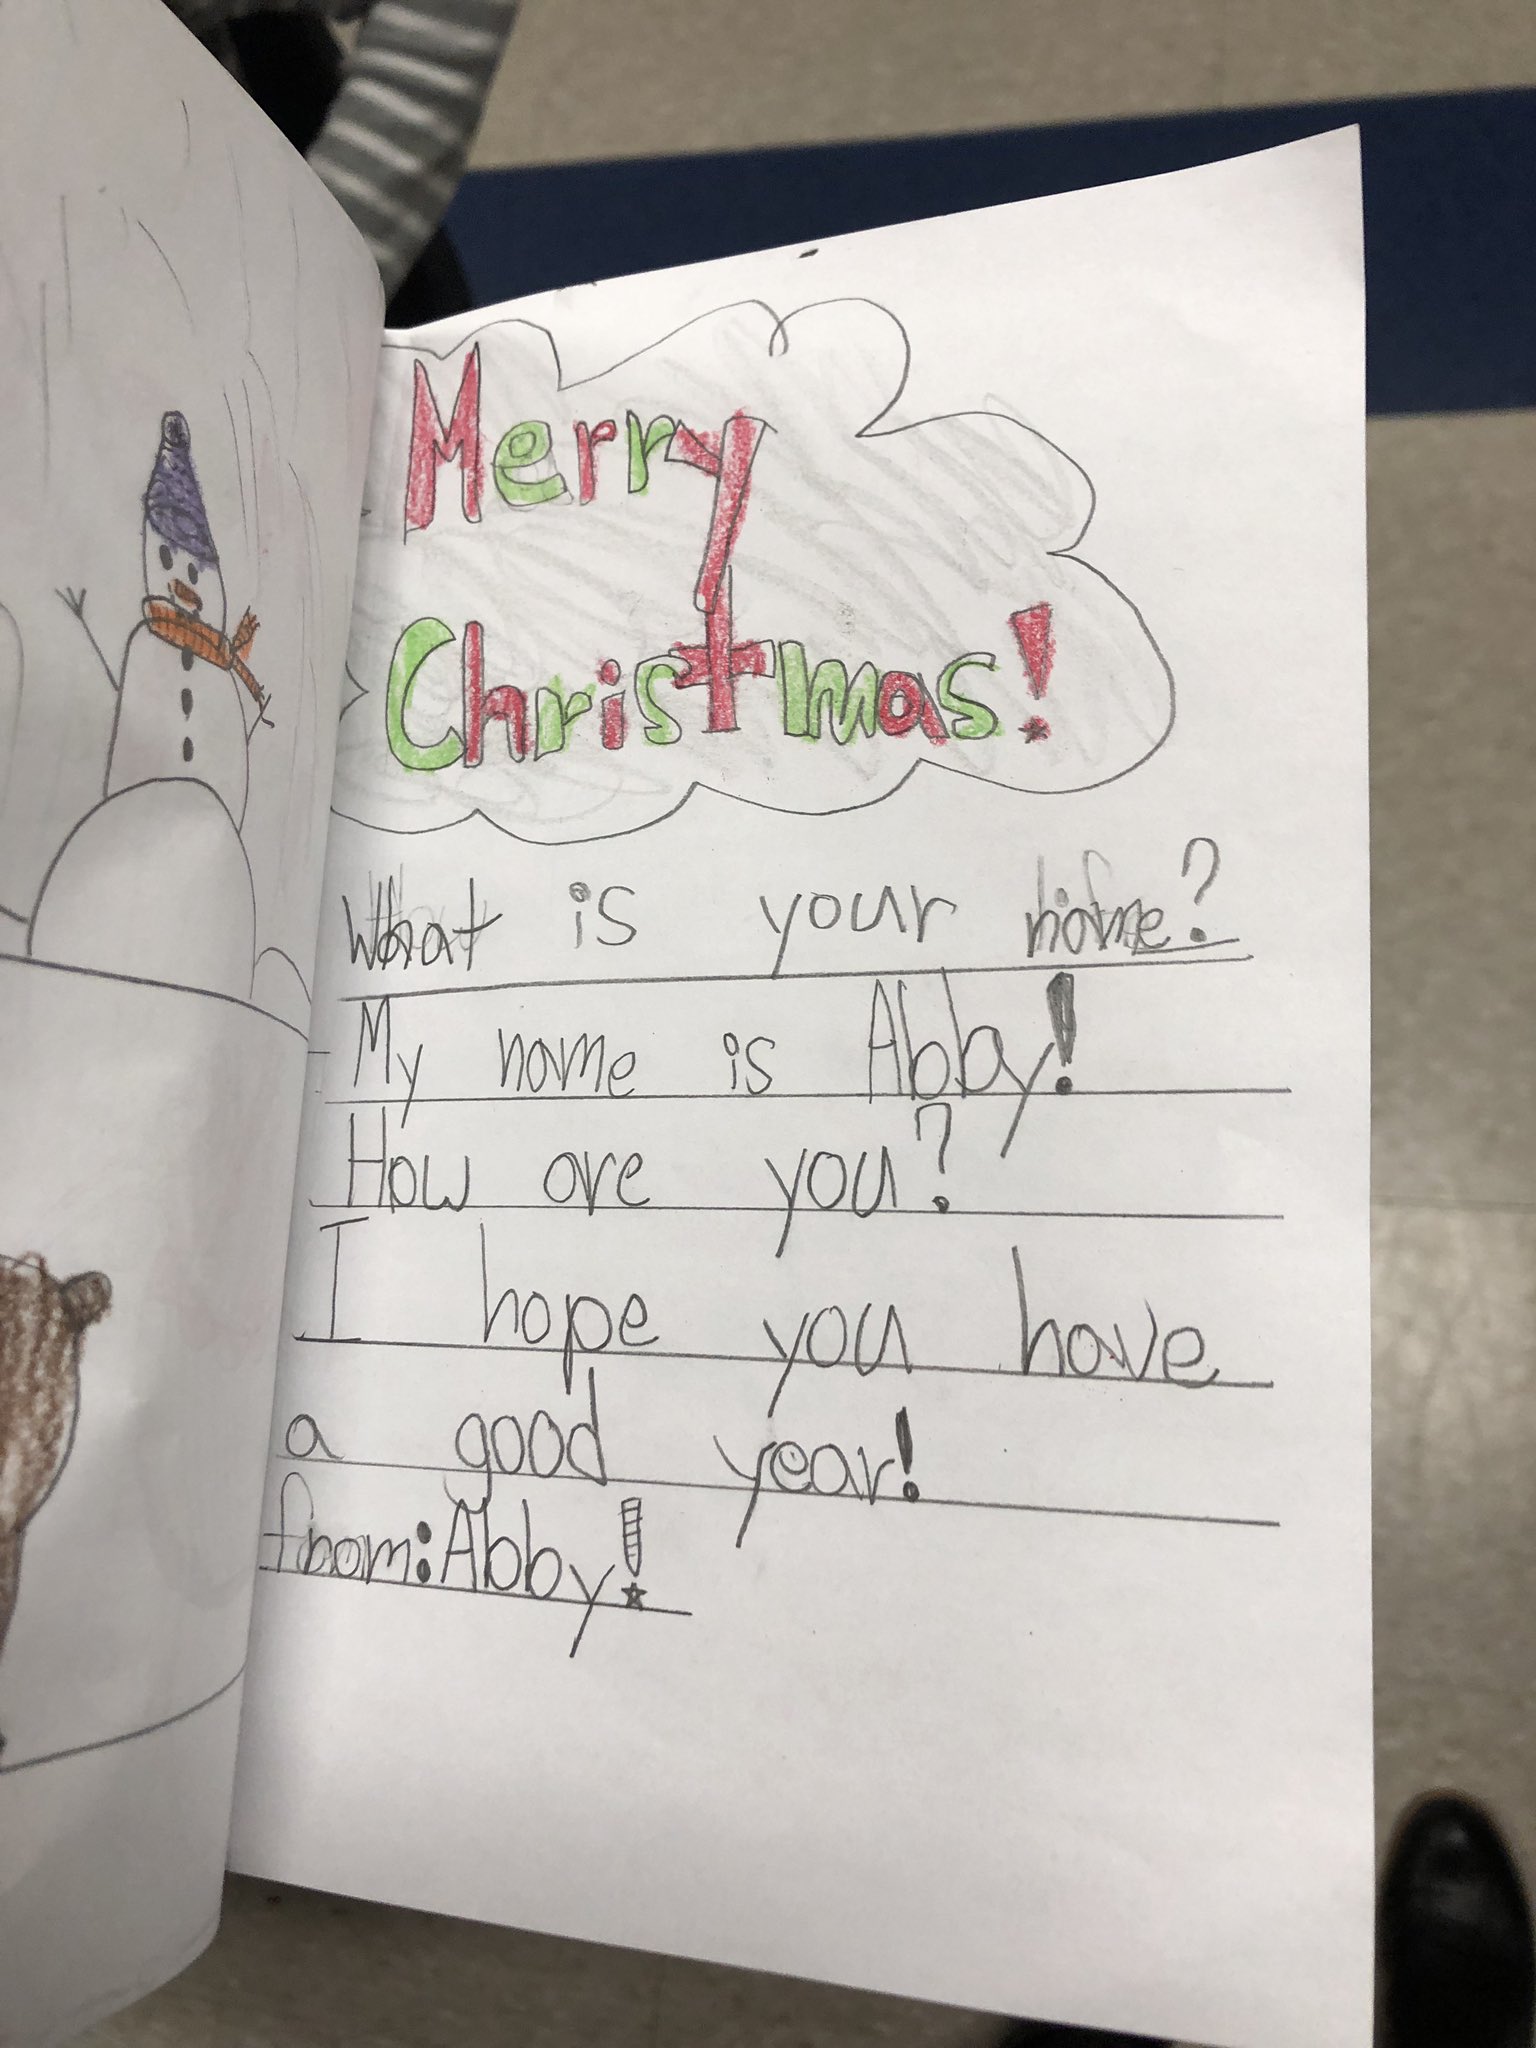 Merry
Christmas!
What is your name?
My name is Abby!
How are you?
I hope you have
a good year!
from: Abby!